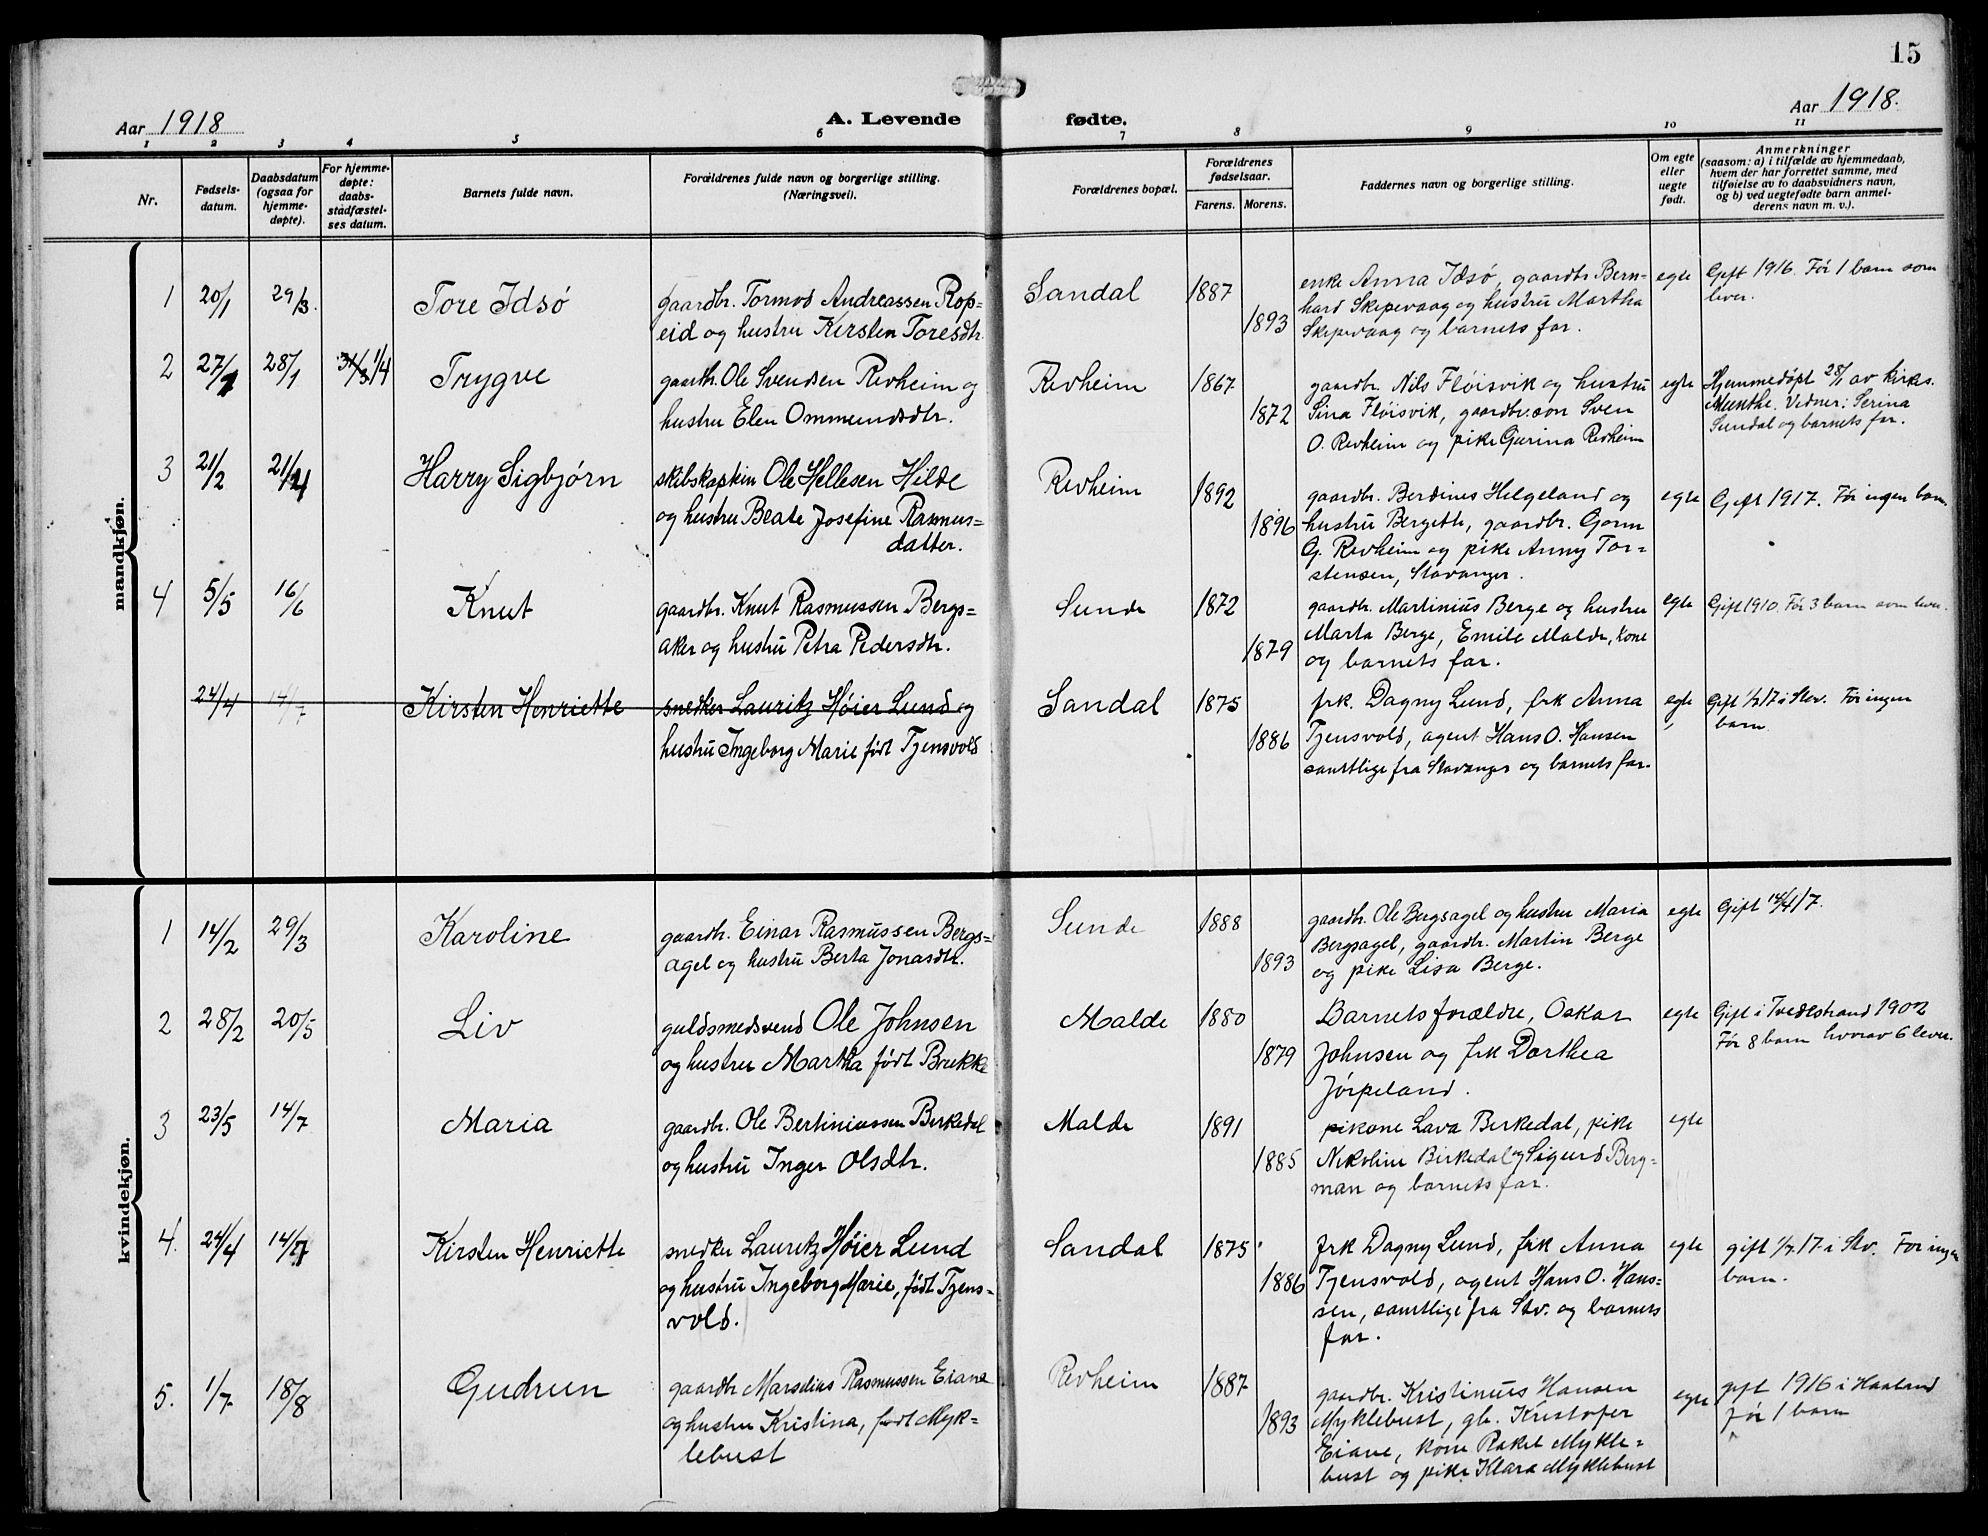 15
Aar 1918
A. Levende fødte.
Aar 1918.
1 2 3 4 5 6 7 8 9 10 11
Nr.
Fødsels-
datum.
Daabsdatum
(ogsaa for
hjemme-
døpte).
For hjemme-
døpte:
daabs-
stadfæstel-
ses datum.
Barnets fulde navn.
Forældrenes fulde navn og borgerlige stilling.
(Næringsvei).
Forældrenes bopæl.
Forældrenes
fødselsaar.
Farens. Morens.
Faddernes navn og borgerlige stilling.
Om egte
eller
uegte
født.
Anmerkninger
(saasom: a) i tilfælde av hjemmedaab,
hvem der har forrettet samme, med
tilføielse av to daabsvidners navn,
og b) ved uegtefødte barn anmel-
derens navn m. v.).
mandkjøn.
1 20/1 29/3. Tore Idsø
gaardbr. Tormod Andreassen Rop=
eid og hustru Kirsten Toresdtr.
Sandal 1887 1893
enke Anna Idsø, gaardbr Bern-
hard Skepevaag og hustru Martha
Skepevaag og barnets far.
egte
Gift 1916. Før 1 barn som
lever.
2 27/1 28/1 31/3 1/4 Trygve
gaardbr. Ole Svendsen Revheim og
hustru Elen Ommundsdtr.
Revheim 1867 1872
gaardbr. Nils Fløisvik og hustru
Sina Fløisvik, gaardbr.søn Sven
O. Revheim og pike Gurina Revheim
egte
Hjemmedøpt 28/1 av kirks.
Munthe. Vidner: Serina
Sundal og barnets far.
3 21/2 21/4 Harry Sigbjørn
skibskaptein Ole Hellesen Hilde
og hustru Beate Josefine Rasmus=
datter.
Revheim 1892 1896
gaardbr. Berdines Helgeland og
hustru Bergette, gaardbr. Gorm
G. Revheim og pike Anny Tor=
stensen, Stavanger.
egte
Gift 1917. Før ingen barn
4 5/5 16/6 Knut
gaardbr. Knut Rasmussen Bergs=
aker og hustru Petra Pedersdtr.
Sunde 1872 1879
gaardbr. Martinius Berge og hustru
Marta Berge, Emile Malde, kone
og barnets far.
egte
Gift 1910. Før 3 barn som lever.
24/4 14/7 Kirsten Henriette
snedker Lauritz Høier Lund og
hustru Ingeborg Marie født Tjensvold
Sandal 1875 1886
frk. Dagny Lund, frk Anna
Tjensvold, agent Hans O. Hansen
samtlige fra Stavanger og barnets far.
egte
Gift 1/7 17 i Stv. Før ingen
barn
kvindekjøn.
1 14/2 29/3 Karoline
gaardbr. Einar Rasmussen Bergs=
agel og hustru Berta Jonasdtr.
Sunde 1888 1893
gaardbr. Ole Bergsagel og hustru Maria
Bergsagel, gaardbr. Martin Berge
og pike Lisa Berge.
egte
Gift 14/4 17.
2 28/2 20/5 Liv
guldsmedsvend Ole Johnsen
og hustru Martha født Brekke
Malde 1880 1879
Barnets forældre, Oskar
Johnsen og frk Dorthea
Jørpeland.
egte
Gift i Tvedestrand 1902
Før 8 barn hvorav 6 lever.
3 23/5 14/7 Maria
gaardbr. Ole Bertiniussen Birkedal
og hustru Inger Olsdtr.
Malde 1891 1885
pikone Lava Birkedal, pike
Nikoline Birkedal og Sigurd Berg=
man og barnets far.
egte
4. 24/4 14/7 Kirsten Henriette
snedker Lauritz Høier Lund
og hustru Ingeborg Marie, født Tjens=
vold.
Sandal 1875 1886
frk Dagny Lund, frk Anna
Tjensvold, agent Hans O. Hans=
sen, samtlige fra Stv. og barnets
far.
egte
gift 1/7 17 i Stv. Før ingen
barn.
5. 1/7 18/8 Gudrun
gaardbr Marselius Rasmussen Eiane
og hustru Kristina, født Myk=
lebust
Revheim 1887 1893
gaardbr. Kristinus Hansen
Myklebust, gb. Kristofer
Eiane, kone Rakel Mykle=
bust og pike Klara Myklebust
egte
gift 1916 i Haaland
før 1 barn